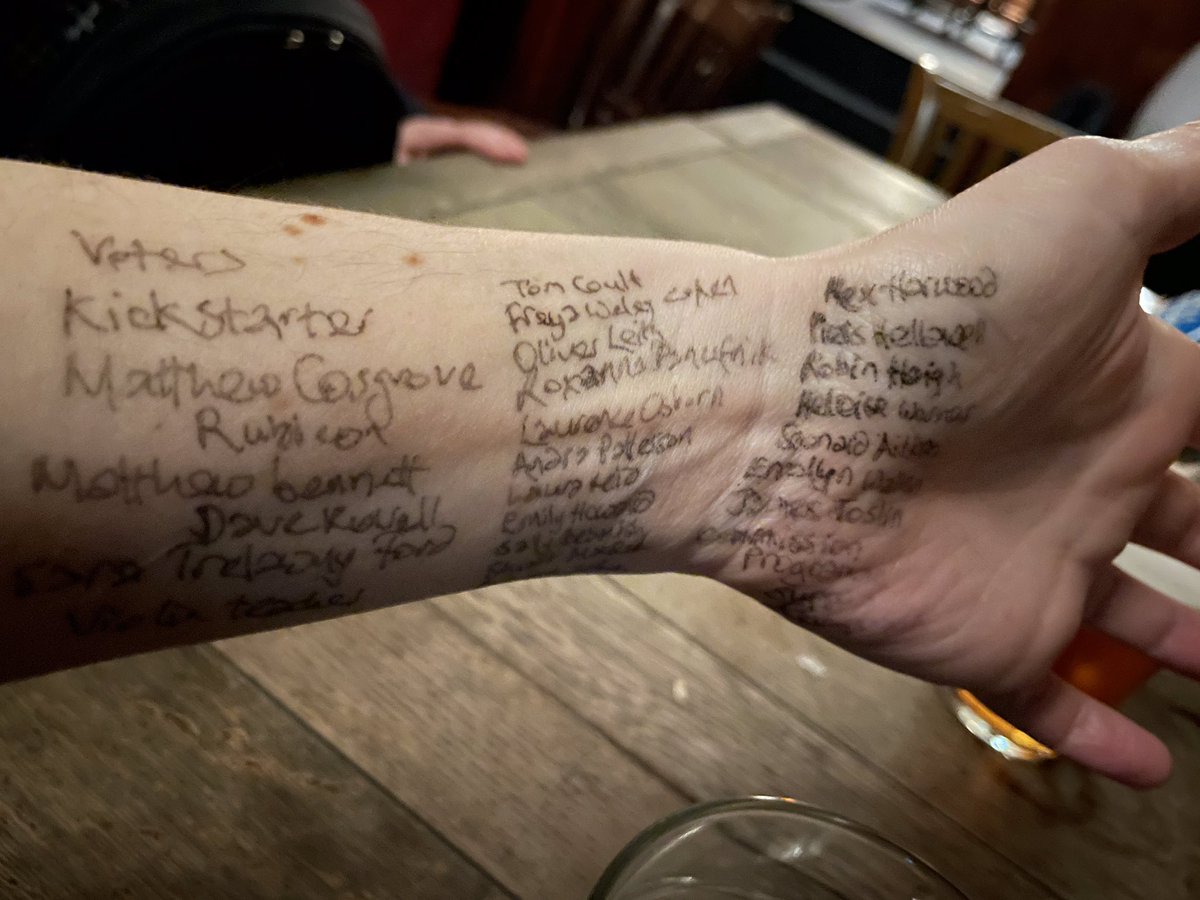 Veters
Kickstarter
Matthew Cosgrove
Rubicon
Matthew bennett
Dave
Sara Trelawny Ford
Violin teacher
Tom Coult
Freya Waley cohen
Oliver Leith
Roxanna Panufnik
Laurence Osborn
Andra Paterson
Laura
Emily Howard
Alex Harwood
Piers Hellawell
Robin Haigh
Heloise Werner
Errollyn Wallen
James Joslin
Commission
Program